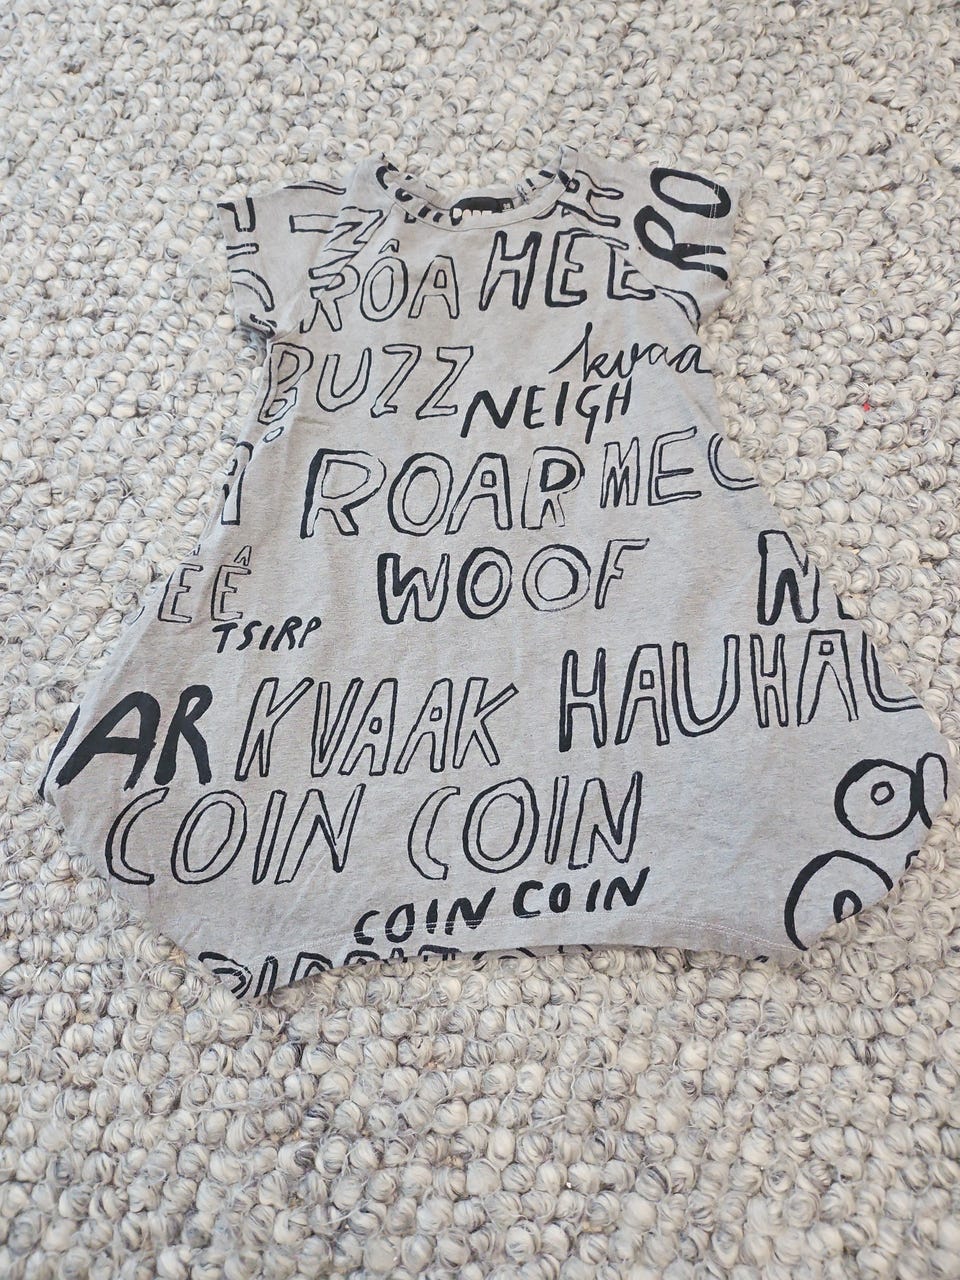 RO
RÔA HEE
BUZZ kvaa
NEIGH
ROAR MEO
WOOF
ÊÊ
TSIRP
AR KVAAK HAUHAU
COIN COIN
COIN COIN